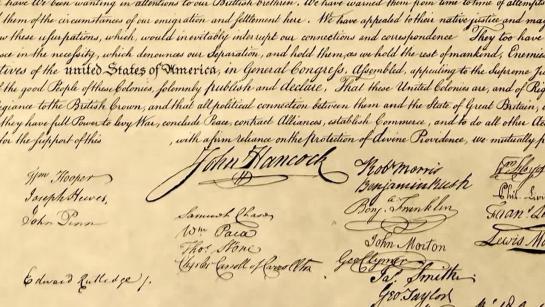 have We been wanting in attentions to our Brittish brethren. We have warned them from time to time of attempts
them of the circumstances of our emigration and settlement here. We have appealed to their native justice and mag
w these usurpations, which, would inevitably interrupt our connections and correspondence They too have
ce in the necessity, which denounces our Separation, and hold them, as we hold the rest of mankind, Enemies
tives of the united States of America, in General Congress, Assembled, appealing to the Supreme Ju
the good People of these Colonies, solemnly publish and declare, That these United Colonies are, and of Rig
egiance to the British Crown, and that all political connection between them and the State of Great Britain,
they have full Power to levy War, conclude Peace, contract Alliances, establish Commerce, and to do all other Ac
for the support of this , with a firm reliance on the protection of divine Providence, we mutually p
John Hancock
Wm Hooper
Joseph Hewes,
John Penn
Edward Rutledge /.
Samuel Chase
Wm Paca
Thos Stone
Charles Carroll of Carrollton
Robt Morris
Benjamin Rush
Benja Franklin
John Morton
Geo Clymer
Jas Smith
Geo Taylor
Phil. Liv
Lewis Mo